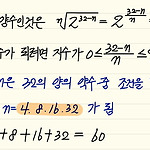 양수인것은 ⁿ√2³²⁻ⁿ = 2^(32-n)/n =
수가 되려면 지수가 0 ≤ (32-n)/n ≤
은 32의 양의 약수중 조건을
n= 4. 8. 16. 32 가 됨
+8+16+32 = 60